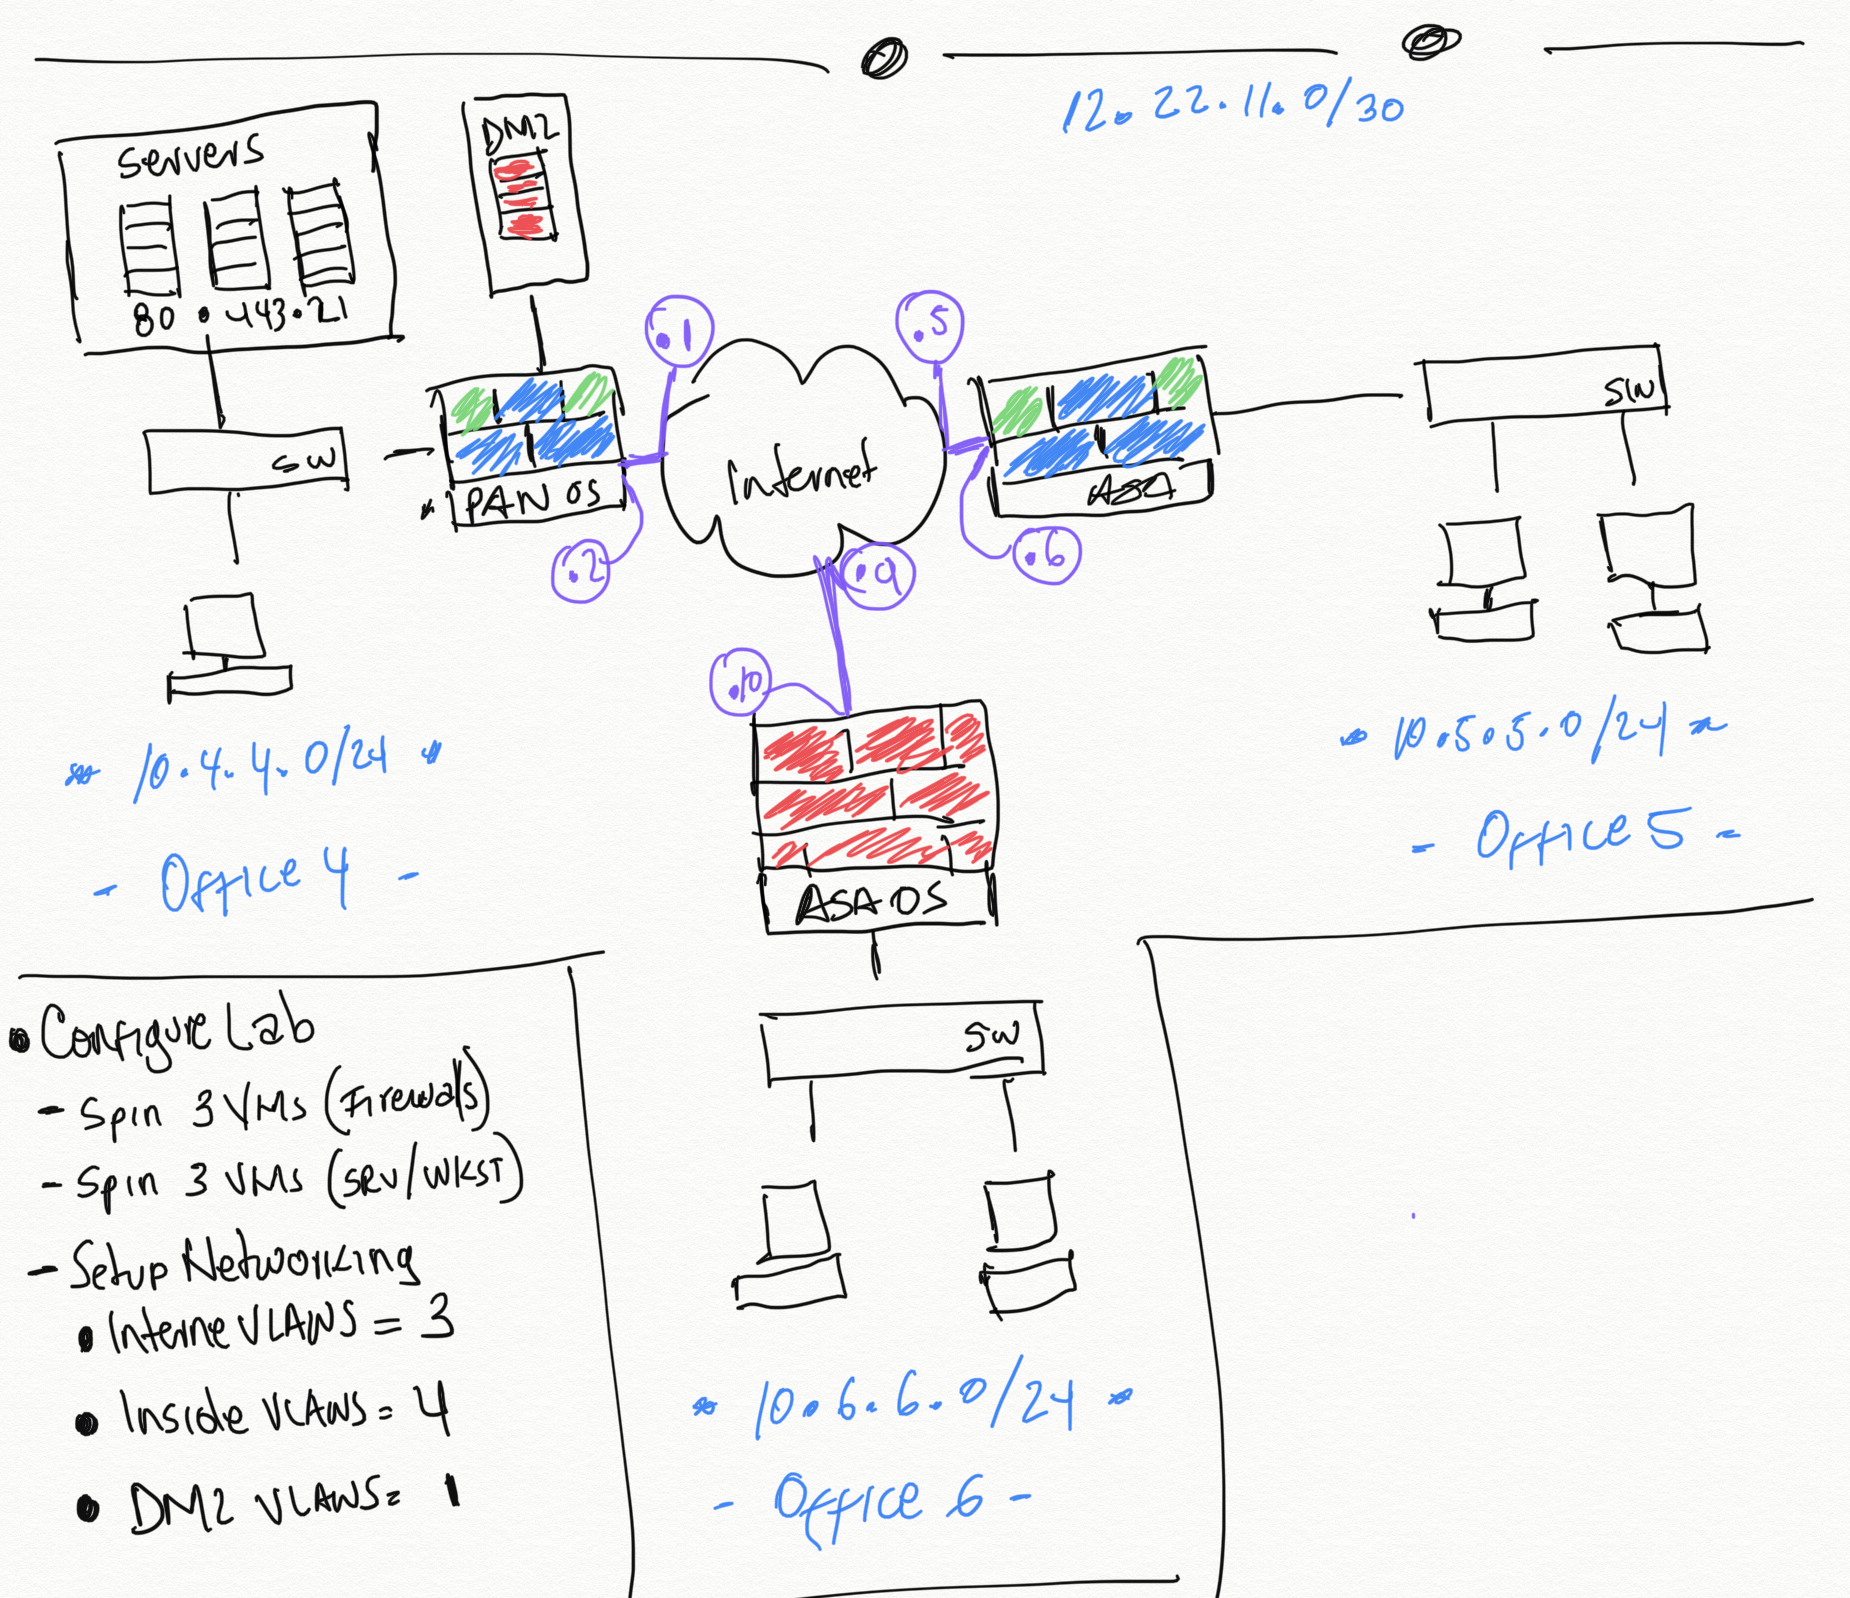 12.22.11.0/30
Servers
80 . 443 . 21
DMZ
SW
PAN OS
.1
.2
Internet
.5
.6
ASA
SW
.9
.10
ASA OS
SW
* 10.4.4.0/24 *
- Office 4 -
* 10.5.5.0/24 *
- Office 5 -
• Configure Lab
- Spin 3 VMs (Firewalls)
- Spin 3 VMs (SRV/WKST)
- Setup Networking
• Interne VLANS = 3
• Inside VLANS = 4
• DMZ VLANS = 1
* 10.6.6.0/24 *
- Office 6 -